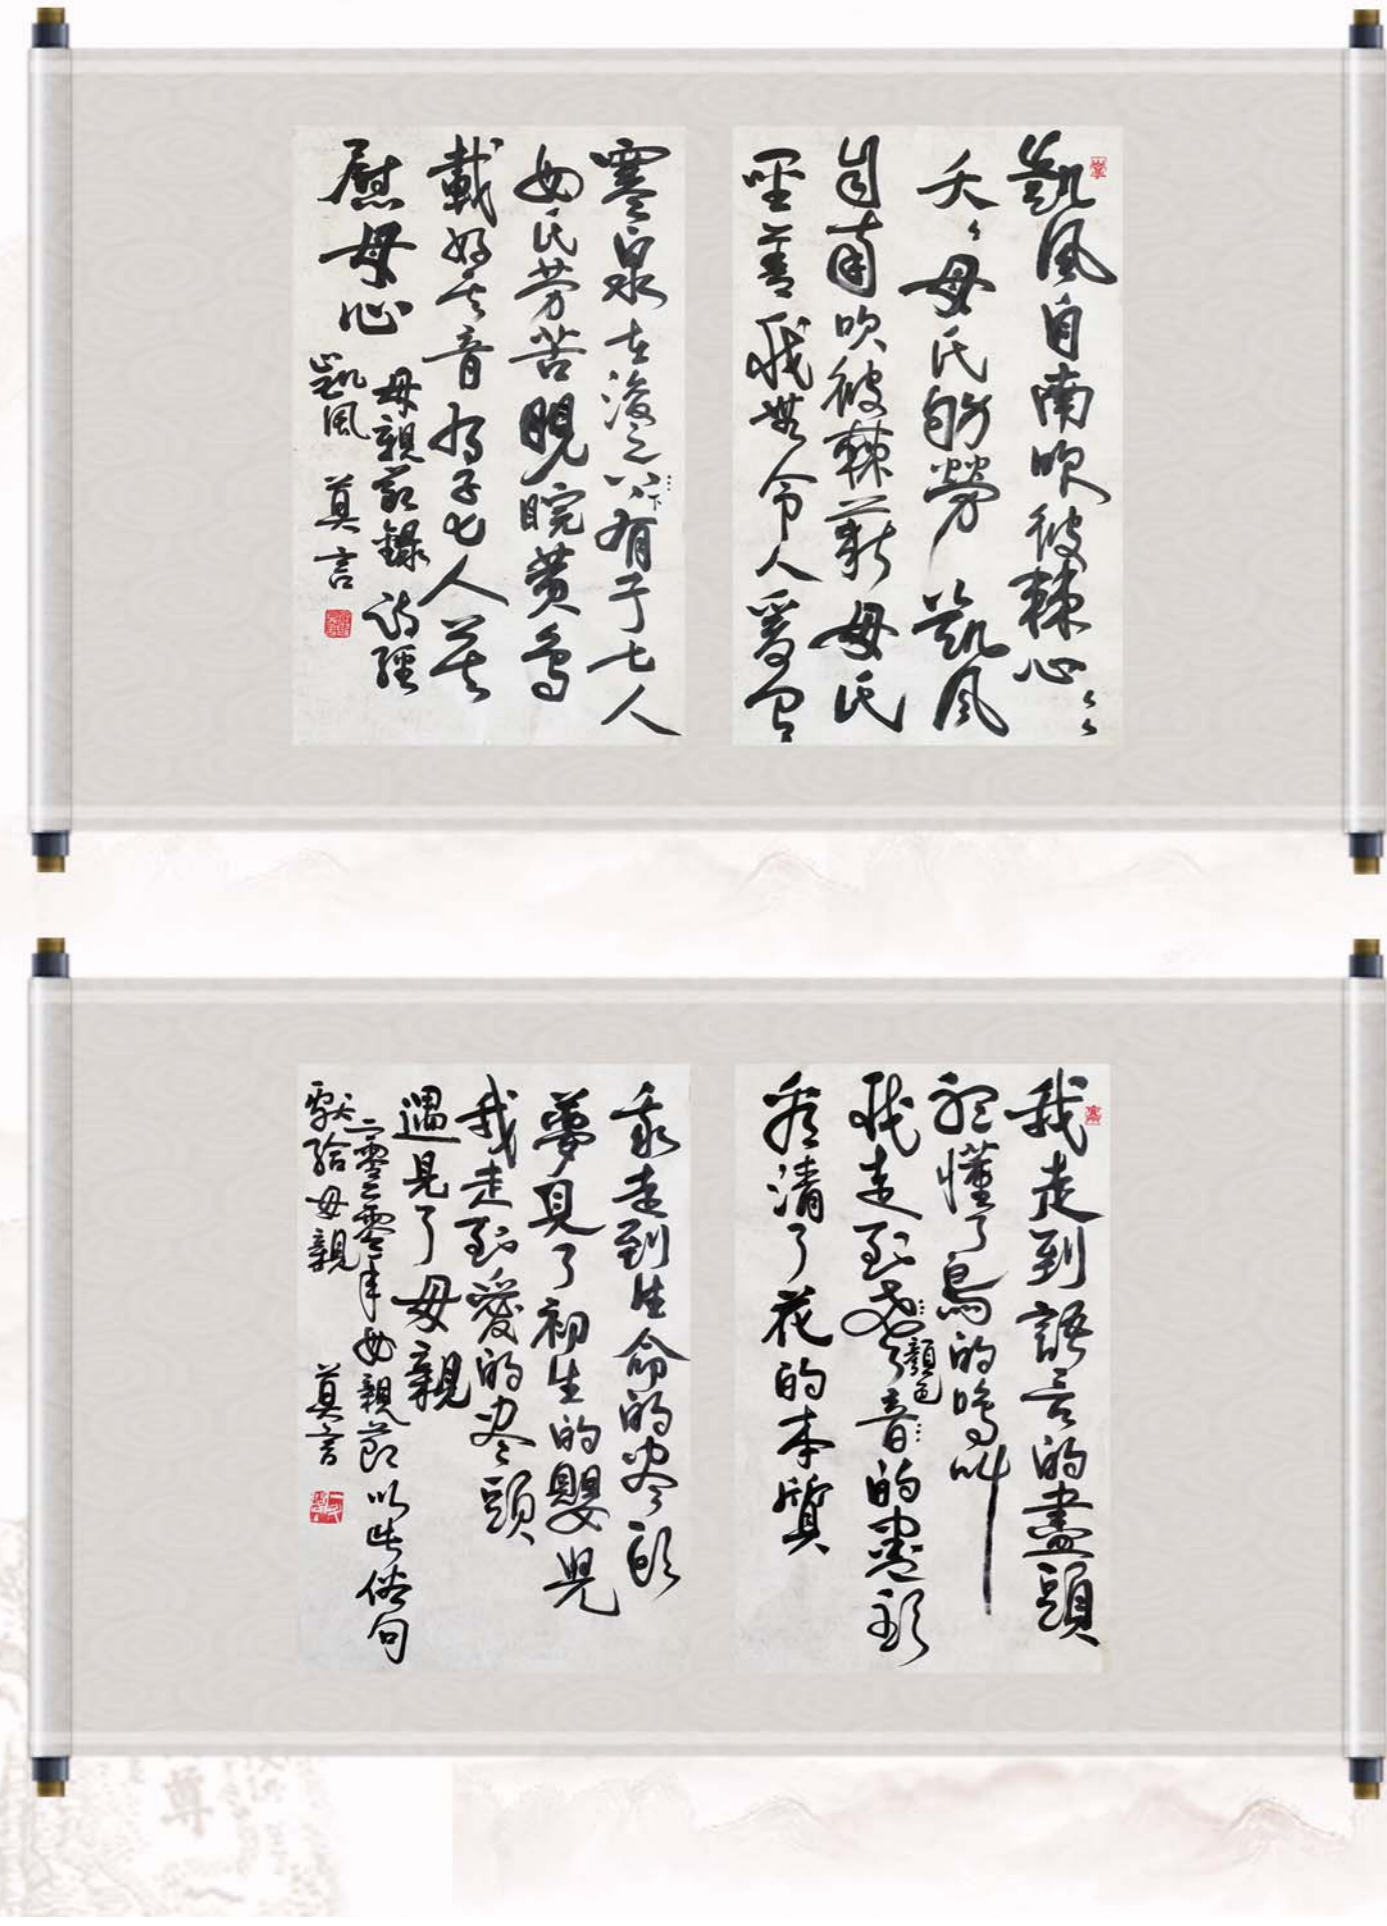 凱風自南吹彼棘心〻〻
夭〻母氏劬勞凱風
自南吹彼棘薪母氏
聖善我無令人爰有
寒泉在浚之下有子七人
母氏劳苦睍睆黃鳥
載好其音有子七人莫
慰母心
母親節錄詩經
凱風 莫言
我走到語言的盡頭
聽懂了鳥的鳴叫
我走到聲音的盡頭
顏色
看清了花的本質
我走到生命的尽頭
夢見了初生的嬰兒
我走到愛的尽頭
遇見了母親
二零二零年母親節以此俗句
獻給母親 莫言